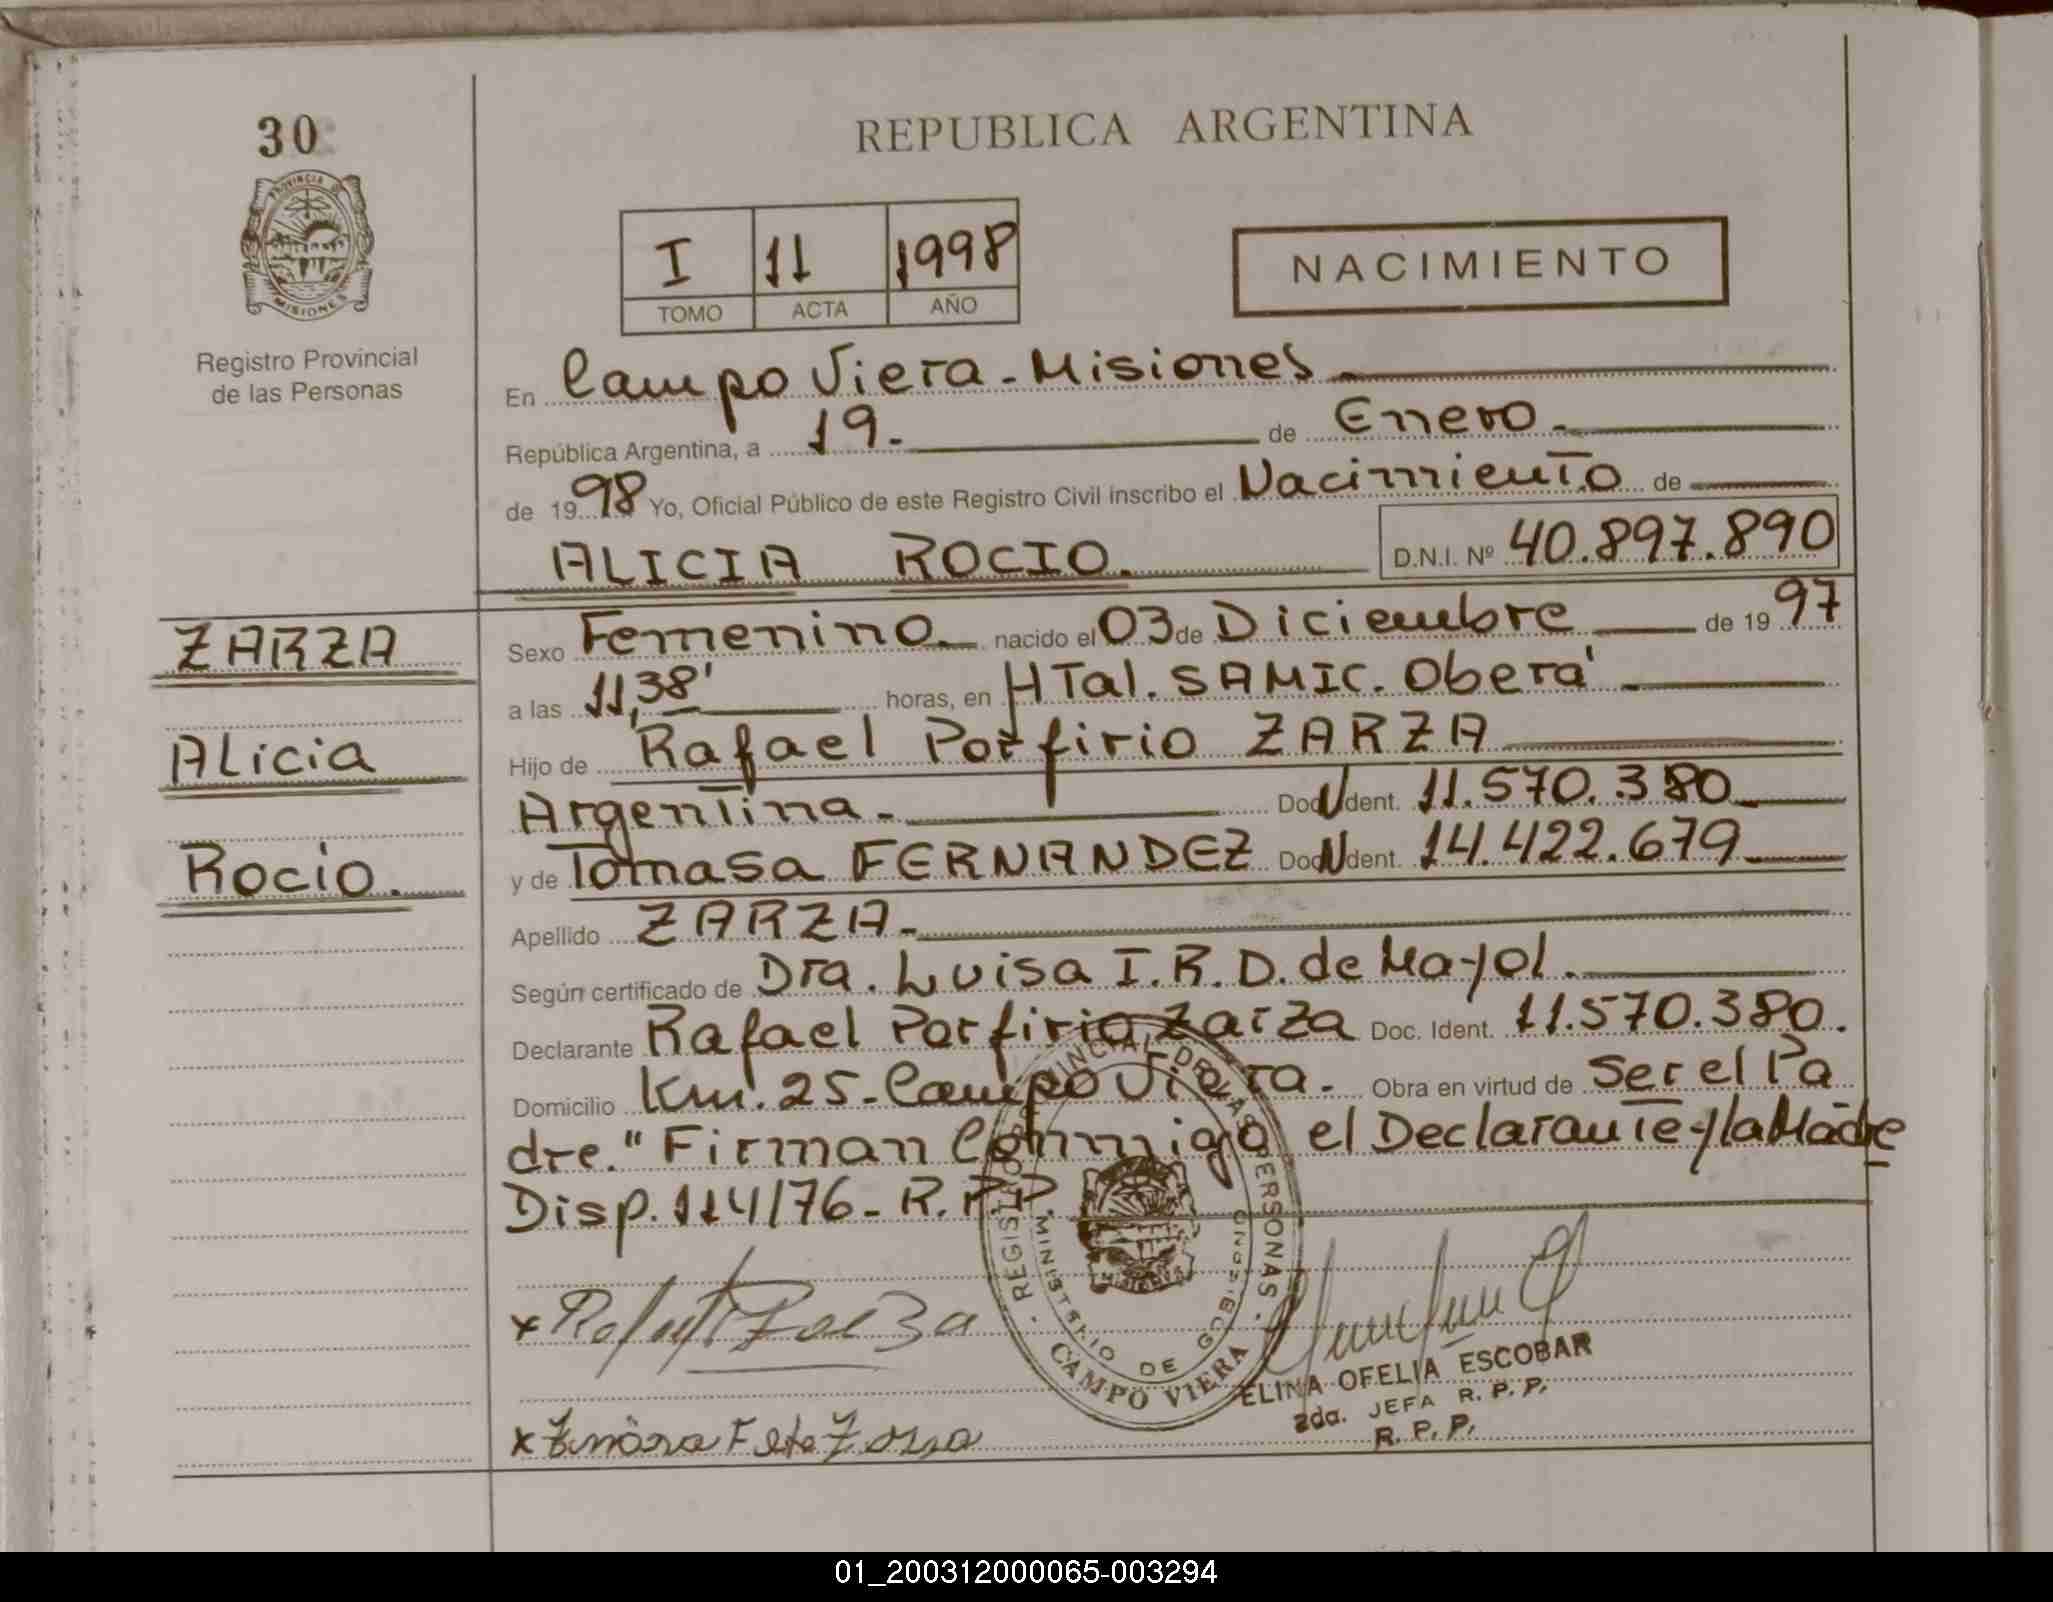 30
PROVINCIA DE
MISIONES
Registro Provincial
de las Personas
REPUBLICA ARGENTINA
I 11 1998
TOMO ACTA AÑO
NACIMIENTO
En Campo Viera - Misiones
República Argentina, a 19.- de Enero.-
de 1998 Yo, Oficial Público de este Registro Civil inscribo el Nacimiento de
ALICIA ROCIO. D.N.I. Nº 40.897.890
ZARZA
Alicia
Rocio.
Sexo Femenino nacido el 03 de Diciembre de 1997
a las 11,38' horas, en HTal. SAMIC. Oberá
Hijo de Rafael Porfirio ZARZA
Argentina.- Doc. Ident. 11.570.380
y de Tomasa FERNANDEZ Doc. Ident. 14.422.679
Apellido ZARZA.-
Según certificado de Dra. Luisa I.R.D. de Mayol.
Declarante Rafael Porfirio Zarza Doc. Ident. 11.570.380.
Domicilio Km. 25 - Campo Viera. Obra en virtud de Ser el Pa
dre." Firman Conmigo el Declarante y la Madre
Disp. 114/76 - R.P.P.
REGISTRO PROVINCIAL DE LAS PERSONAS
MINISTERIO DE GOBIERNO
CAMPO VIERA
x Zarza
x
ELINA OFELIA ESCOBAR
2da. JEFA R. P. P.
R. P. P.
01_200312000065-003294